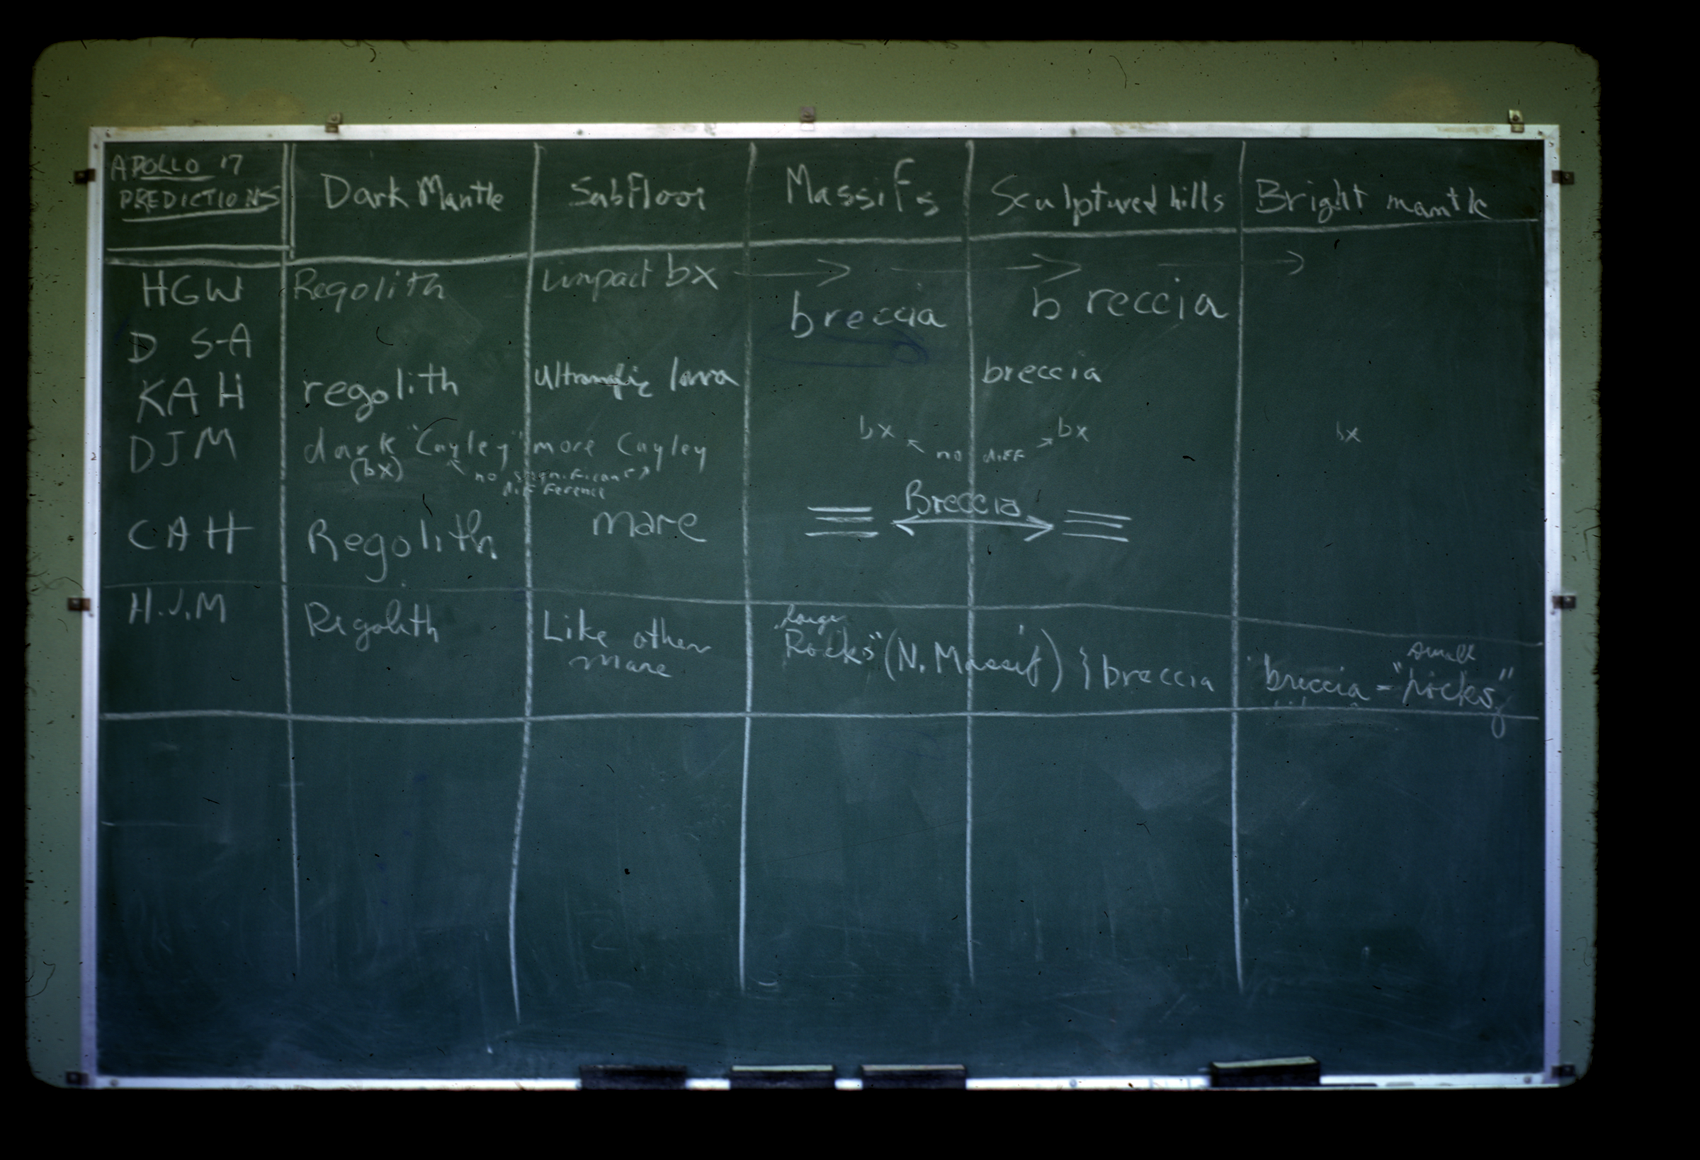 APOLLO 17
PREDICTIONS
Dark Mantle SubFloor Massifs Sculptured hills Bright mantle
HGW Regolith impact bx → → →
breccia breccia
D S-A
KAH regolith Ultramafic lava breccia
DJM dark "Cayley" more Cayley bx bx bx
(bx) no significant no diff
difference
CAH Regolith mare Breccia
H.J.M Regolith Like other larger small
mare Rocks" (N. Massif) } breccia breccia = "rocks"